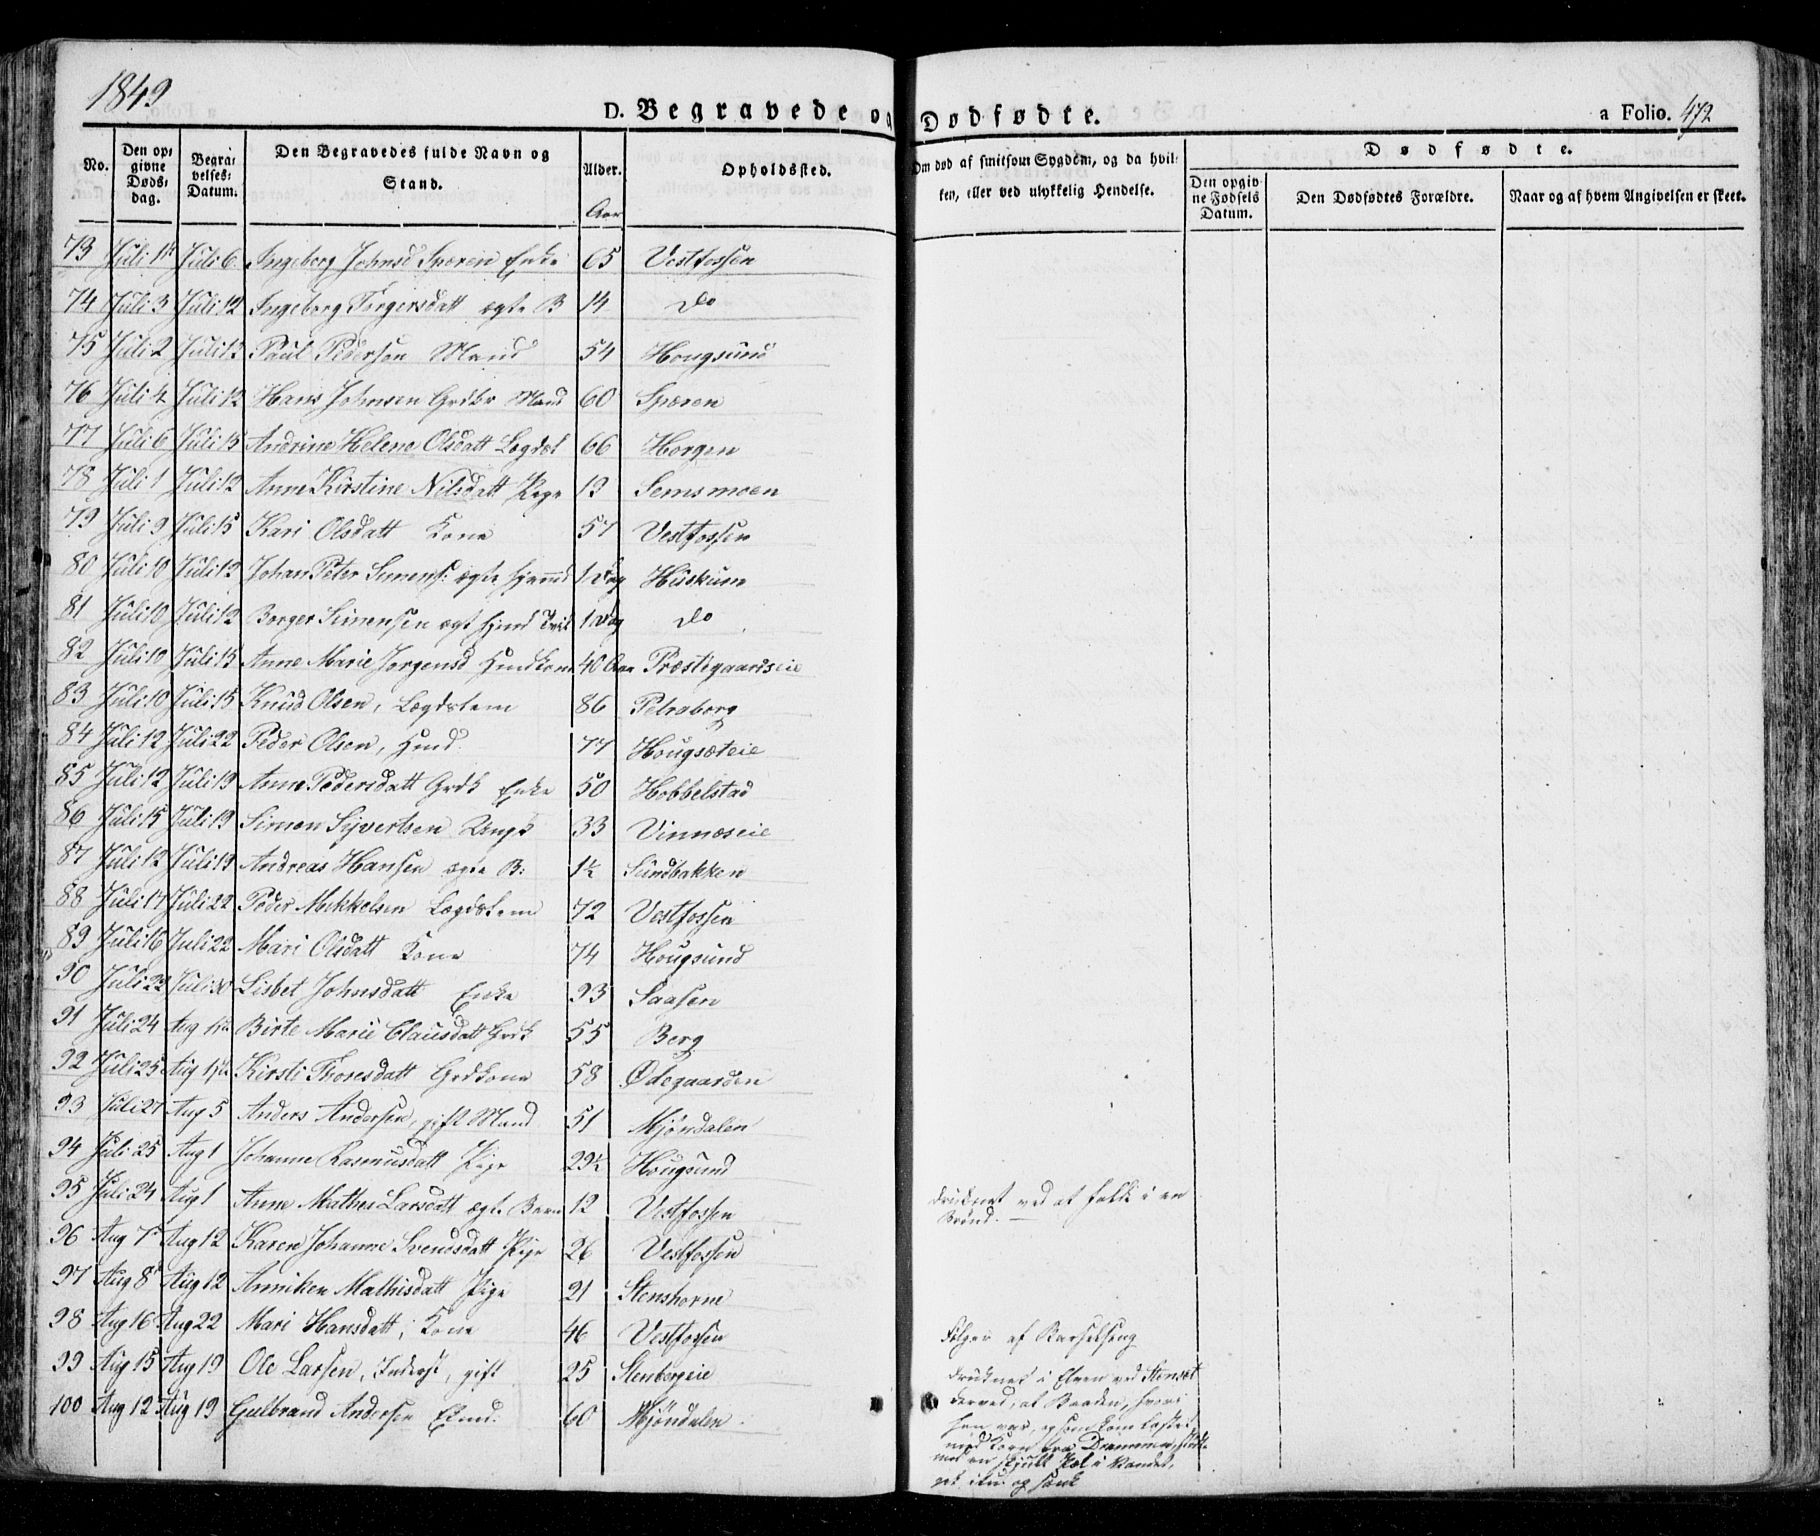 1849
D. Begravede og Dødfødte.
a Folio. 472
No.
Den opgivne Dødsdag.
Begravelses-Datum.
Den Begravedes fulde Navn og Stand.
Alder.
Aar
Opholdssted.
Om død af smitsom Sygdom, og da hvilken, eller ved ulykkelig Hendelse.
Dødfødte.
Den opgivne Fødsels Datum.
Den Dødfødtes Forældre.
Naar og af hvem Angivelsen er skeet.
73 Juli 1st Juli 6 Ingeborg Johnsd Spæren Enke 65 Vestfossen
74 Juli 3 Juli 12 Ingeborg Torgersdatt ægte B 14 Do
75 Juli 2 Juli 12 Paul Pedersen Mand 54 Hougsund
76 Juli 4 Juli 12 Hans Johnsen Grdbr Mand 60 Spæren
77 Juli 6 Juli 15 Andrine Helene Olsdatt Lægdsl 66 Horgen
78 Juli 1 Juli 12 Anne Kirstine Nilsdatt Pige 19 Semsmoen
79 Juli 9 Juli 15 Kari Olsdatt Kone 57 Vestfossen
80 Juli 10 Juli 12 Johan Peter Simens: ægte 1 Dag Huskum
81 Juli 10 Juli 12 Borger Simensen ægt 1 Dag Do
82 Juli 10 Juli 15 Anne Marie Jorgensd Husmkone 40 Aar Præstegaardseie
83 Juli 10 Juli 15 Knud Olsen, Lægdslem 86 Petraborg
84 Juli 12 Juli 22 Peder Olsen, Husmd 77 Hougsæteie
85 Juli 12 Juli 19 Anne Pedersdatt Grdk Enke 50 Hobbelstad
86 Juli 15 Juli 19 Simon Syvertsen Ungk 33 Vinnæseie
87 Juli 12 Juli 19 Andreas Hansen ægte B: 1½ Sundbakken
88 Juli 17 Juli 22 Peder Mikkelsen Lægdslem 72 Vestfossen
89 Juli 16 Juli 22 Mari Olsdatt Kone 74 Hougsund
90 Juli 22 Juli 30 Lisbet Johnsdatt Enke 93 Saasen
91 Juli 24 Aug 1ste Birte Marie Clausdatt Grdk 55 Berg
92 Juli 25 Aug 1ste Kirsti Thoresdatt Grdkone 58 Ødegaarden
93 Juli 27 Aug 5 Anders Andersen, gift Mand 51 Mjøndalen
94 Juli 25 Aug 1 Johanne Rasmusdatt Pige 29½ Hougsund
95 Juli 24 Aug 1 Anne Mathea Larsdatt ægte Barn 12 Vestfossen druknet ved at falde i en
Brønd.
96 Aug 7 Aug 12 Karen Johanne Svendsdatt Pige 26 Vestfossen
97 Aug 8 Aug 12 Anniken Mathisdatt Pige 21 Stenshorne
98 Aug 16 Aug 22 Mari Hansdatt, Kone 46 Vestfossen Følger af Barselseng
99 Aug 15 Aug 19 Ole Larsen, Inderst, gift 25 Stenbergeie druknet i Elven ved Stenset
100 Aug 12 Aug 19 Gulbrand Andersen 60 Mjöndalen
derved, at Baaden, hvori
han var, og som kom lastet
med Korn fra Drammen, stødte
mod en skjult Pæl i Vandet,
og sank